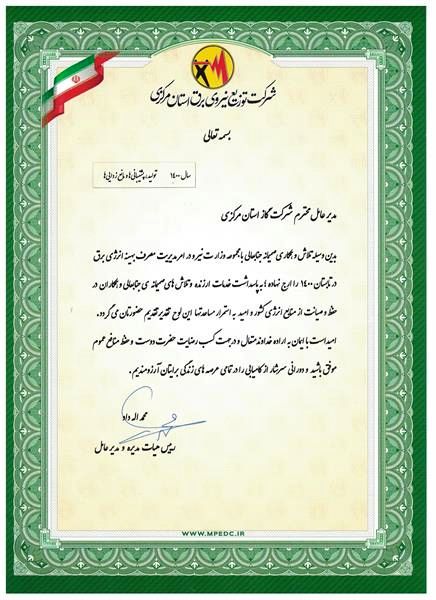 شرکت توزیع نیروی برق استان مرکزی
بسمه تعالی
سال ۱۴۰۰ تولید، پشتیبانی‌ها و مانع زدایی‌ها
مدیر عامل محترم شرکت گاز استان مرکزی
بدین وسیله تلاش و همکاری صمیمانه جنابعالی با مجموعه وزارت نیرو در امر مدیریت مصرف بهینه انرژی برق
در تابستان ۱۴۰۰ را ارج نهاده و به پاسداشت خدمات ارزنده و تلاش های صمیمانه ی جنابعالی و همکاران در
حفظ و صیانت از منابع انرژی کشور و امید به استمرار مساعدتها این لوح تقدیر تقدیم حضورتان می گردد.
امید است با ایمان به اراده خداوند متعال و در جهت کسب رضایت حضرت دوست و حفظ منافع عموم
موفق باشید و دورانی سرشار از کامیابی را در تمامی عرصه های زندگی برایتان آرزومندیم.
محمد اله داد
رییس هیات مدیره و مدیر عامل
WWW.MPEDC.IR